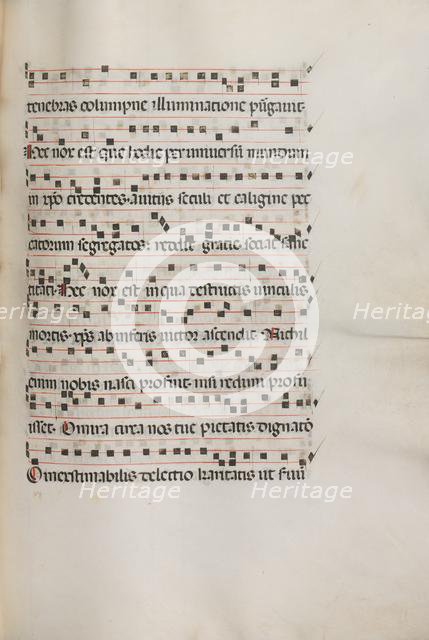 tenebras columpne illuminatione purgauit.
Hec nox est que hodie per uniuersū mundum
in xpo credentes, a uitiis seculi et caligine pec
catorum segregatos: reddit gratie sociat sanc
titati. Hec nox est in qua destructis uinculis
mortis xps ab inferis uictor ascendit. Nichil
enim nobis nasci profuit: nisi redimi profu
isset. O mira circa nos tue pietatis dignatō
O inextimabilis dilectio karitatis ut seruū
Heritage Heritage Heritage
Heritage Heritage Heritage
Heritage Heritage